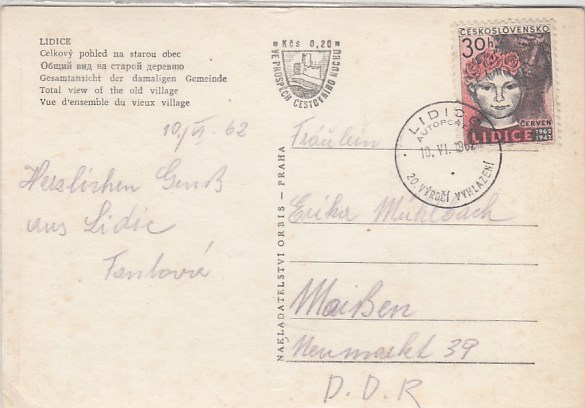 LIDICE
Celkový pohled na starou obec
Общий вид на старой деревню
Gesamtansicht der damaligen Gemeinde
Total view of the old village
Vue d'ensemble du vieux village
Kčs 0,20
VE PROSPĚCH CESTOVNÍHO RUCHU
ČESKOSLOVENSKO
30h
ČERVEN
LIDICE 1962 1942
LIDICE
AUTOPOŠTA
10. VI. 1962
20. VÝROČÍ VYHLAZENÍ
10/VI. 62
Herzlichen Gruß
aus Lidic
NAKLADATELSTVÍ ORBIS – PRAHA
Fräulein
Erika Mühlbach
Maißen
Neumarkt 39
D.D.R